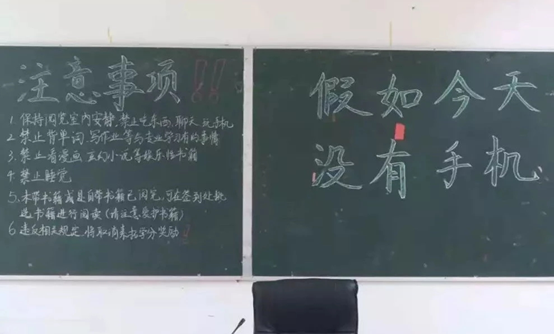 注意事项!!
1. 保持阅览室内安静,禁止吃东西、聊天、玩手机
2. 禁止背单词、写作业等与专业学习有的事情
3. 禁止看漫画、玄幻小说等娱乐性书籍
4. 禁止睡觉
5. 未带书籍或是自带书籍已阅完,可在签到处挑
选书籍进行阅读(请注意爱护书籍)
6. 违反相关规定,将取消素拓学分奖励
假如今天
没有手机